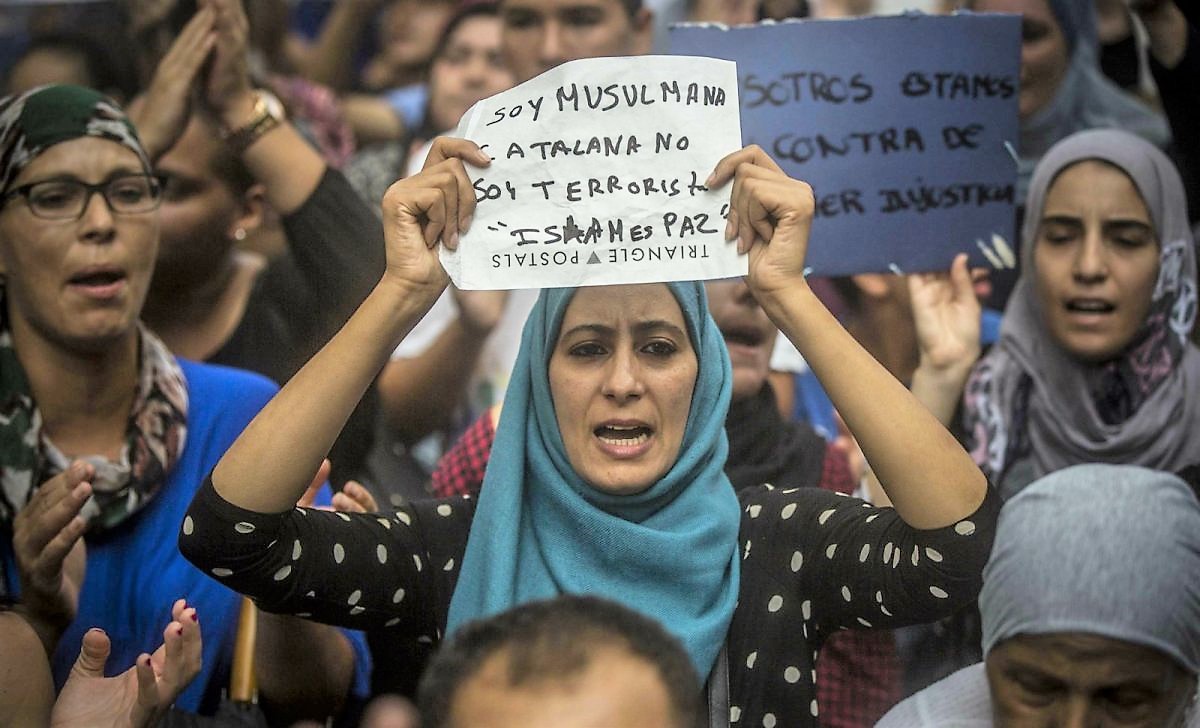 SOY MUSULMANA
CATALANA NO
SOY TERRORISTA
"ISLAM ES PAZ"
TRIANGLE POSTALS
OSOTROS ESTAMOS
CONTRA DE
INJUSTICIA